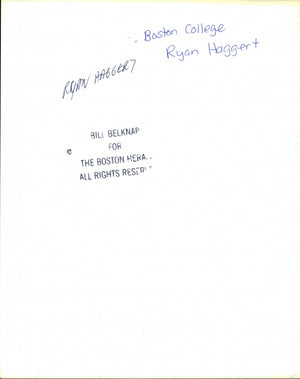 Boston College
Ryan Haggert
RYAN HAGGERT
BILL BELKNAP
© FOR
THE BOSTON HERA
ALL RIGHTS RESER